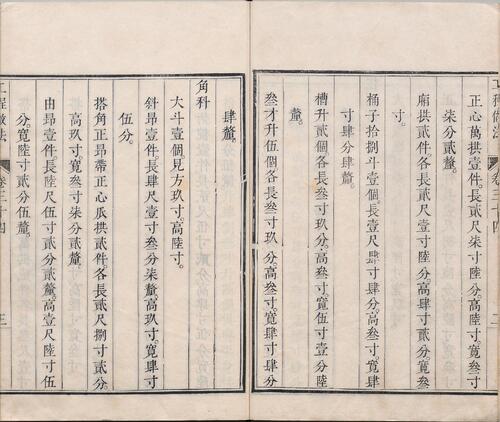 工程做法 卷三十四 二
正心萬拱壹件。長貳尺柒寸陸分。高陸寸。寬叁寸
柒分貳釐。
廂拱貳件各長貳尺壹寸陸分。高肆寸貳分。寬叁
寸。
桶子拾捌斗壹個。長壹尺肆寸肆分。高叁寸。寬肆
寸肆分肆釐。
槽升貳個各長叁寸玖分。高叁寸。寬伍寸壹分陸
釐。
叁才升伍個各長叁寸玖分。高叁寸。寬肆寸肆分
肆釐。
角科
大斗壹個。見方玖寸。高陸寸。
斜昂壹件。長肆尺壹寸叁分柒釐。高玖寸。寬肆寸
伍分。
搭角正昂帶正心瓜拱貳件各長貳尺捌寸貳分
高玖寸寬叁寸柒分貳釐
由昂壹件。長陸尺伍寸貳分貳釐。高壹尺陸寸伍
分寬陸寸貳分伍釐。
工程做法 卷三十四 三